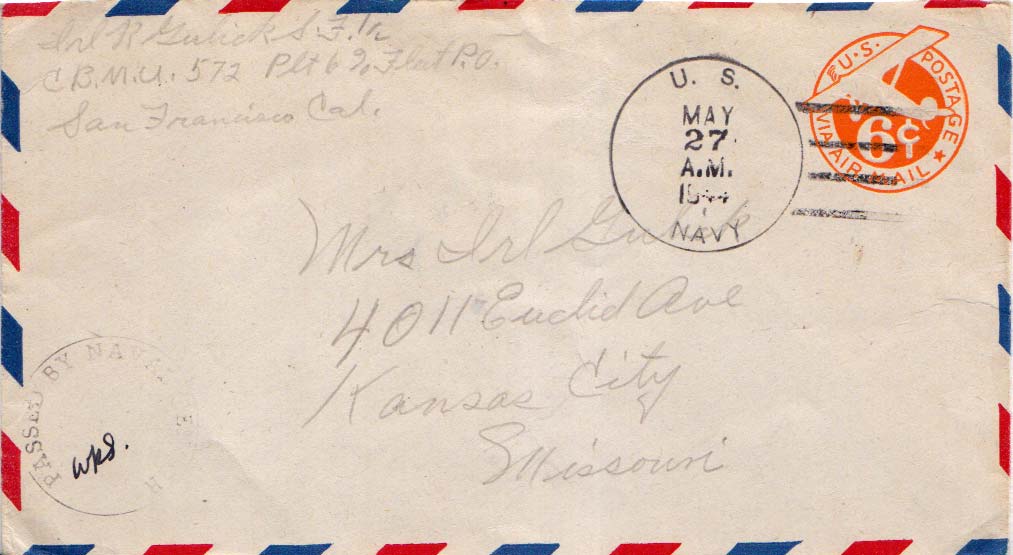 Irl R Gulick S.F. 1/c
C.B.M.U. 572 Plt 6 % Fleet P.O.
San Francisco Cal.
U. S.
MAY
27
A.M.
1944
NAVY
U.S. POSTAGE
6¢
VIA AIR MAIL
Mrs Irl Gulick
4011 Euclid Ave
Kansas City
Missouri
PASSED BY NAVAL